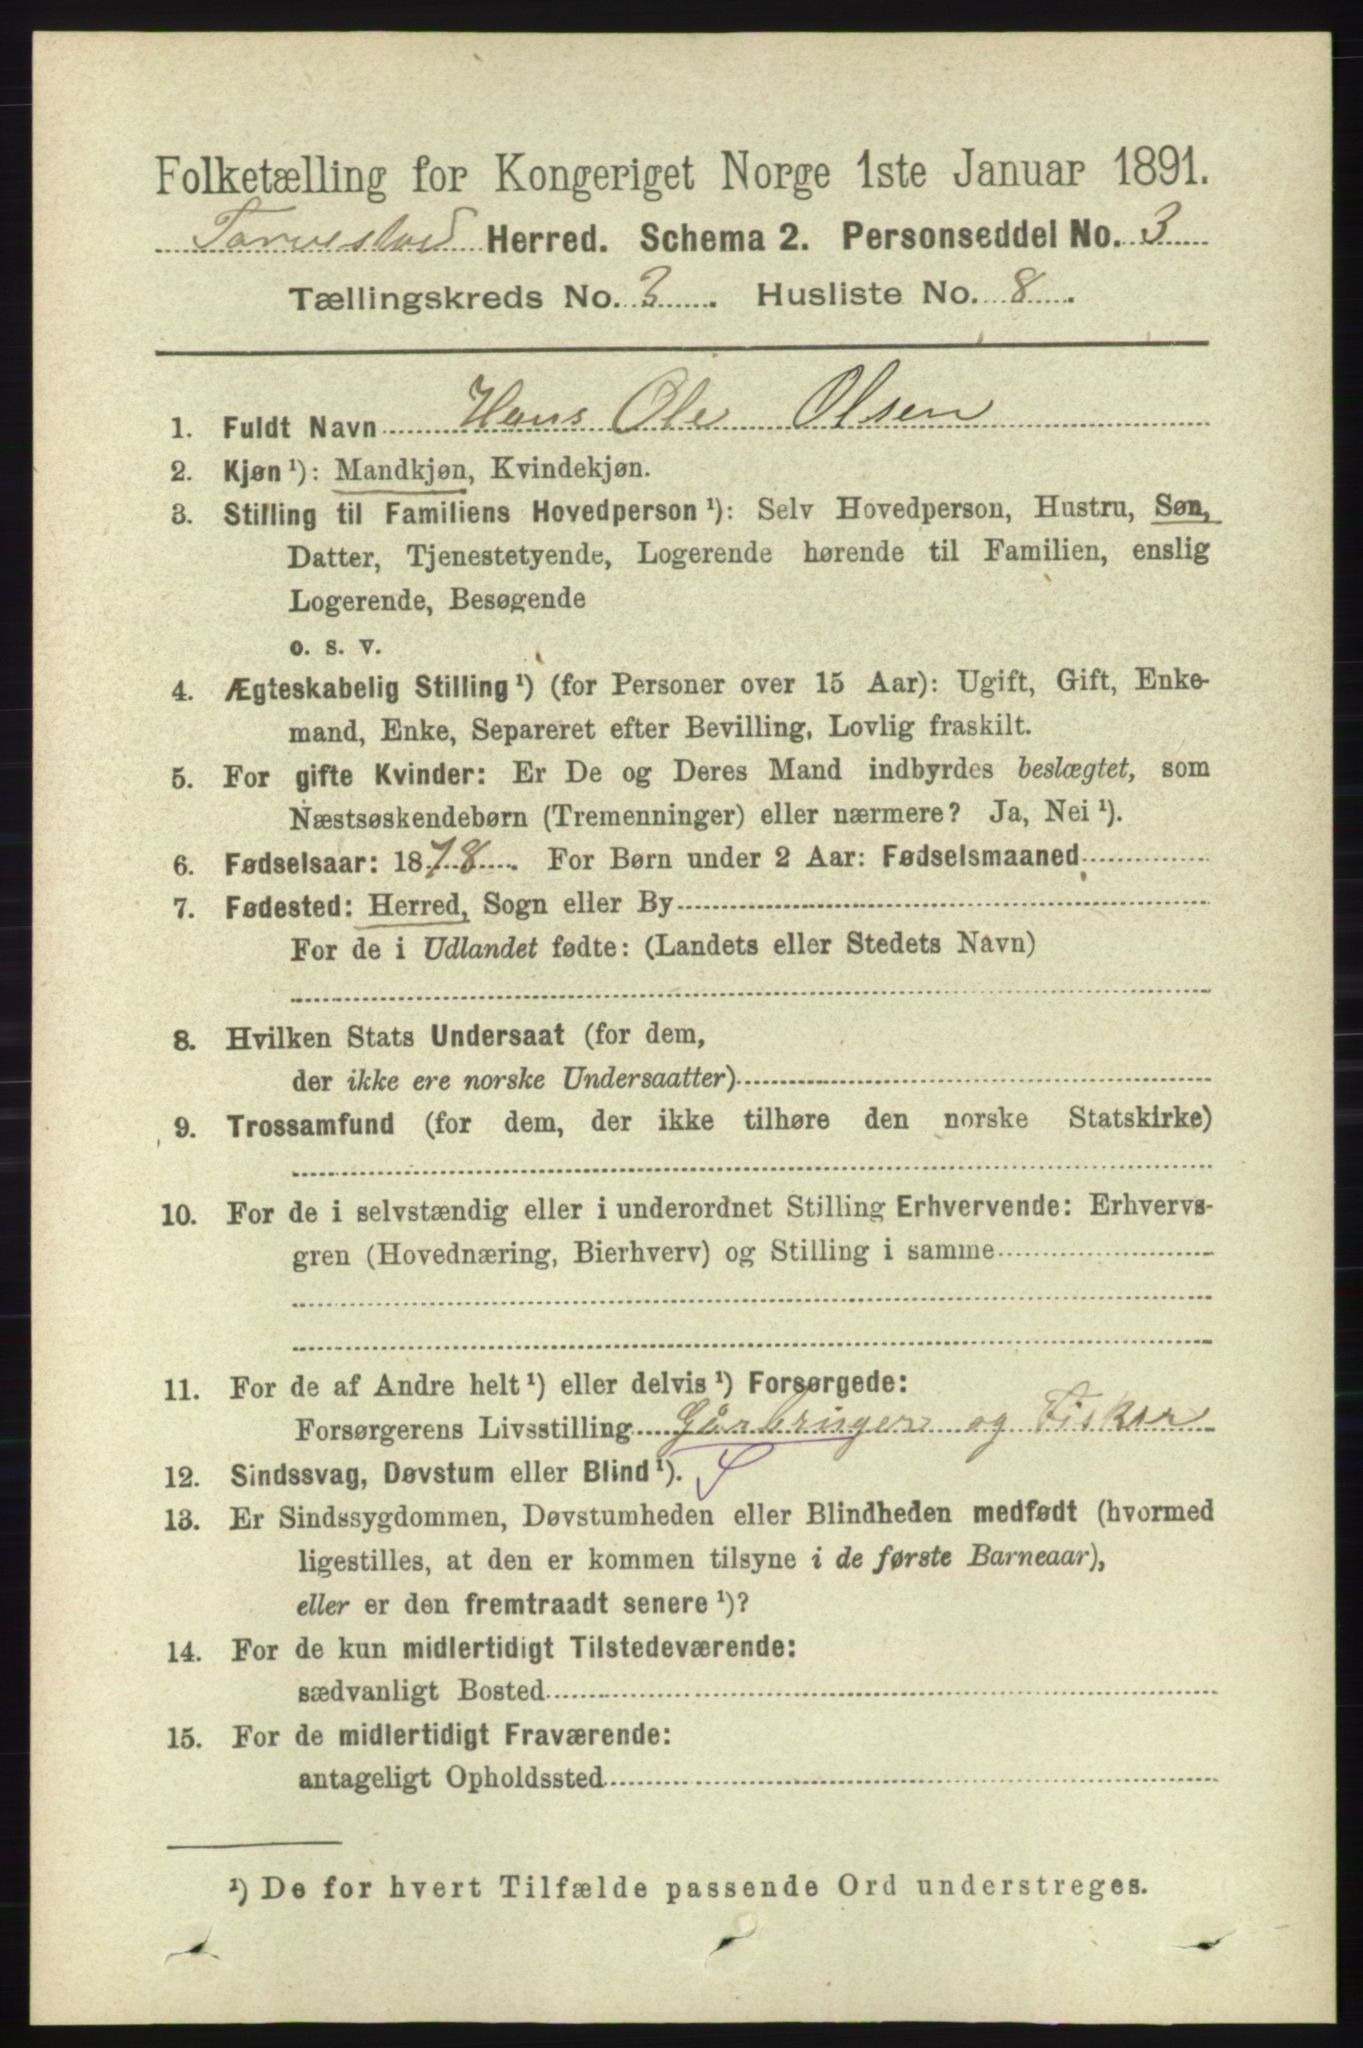 Folketælling for Kongeriget Norge 1ste Januar 1891.
Torvestad Herred. Schema 2. Personseddel No. 3
Tællingskreds No. 3. Husliste No. 8.
1. Fuldt Navn Hans Ole Olsen
2. Kjøn ¹): Mandkjøn, Kvindekjøn.
3. Stilling til Familiens Hovedperson ¹): Selv Hovedperson, Hustru, Søn,
Datter, Tjenestetyende, Logerende hørende til Familien, enslig
Logerende, Besøgende
o. s. v.
4. Ægteskabelig Stilling ¹) (for Personer over 15 Aar): Ugift, Gift, Enke-
mand, Enke, Separeret efter Bevilling, Lovlig fraskilt.
5. For gifte Kvinder: Er De og Deres Mand indbyrdes beslægtet, som
Næstsøskendebørn (Tremenninger) eller nærmere? Ja, Nei ¹).
6. Fødselsaar: 1878. For Børn under 2 Aar: Fødselsmaaned
7. Fødested: Herred, Sogn eller By
For de i Udlandet fødte: (Landets eller Stedets Navn)
8. Hvilken Stats Undersaat (for dem,
der ikke ere norske Undersaatter)
9. Trossamfund (for dem, der ikke tilhøre den norske Statskirke)
10. For de i selvstændig eller i underordnet Stilling Erhvervende: Erhvervs-
gren (Hovednæring, Bierhverv) og Stilling i samme
11. For de af Andre helt ¹) eller delvis ¹) Forsørgede:
Forsørgerens Livsstilling Gårbruger og Fisker
12. Sindssvag, Døvstum eller Blind ¹).
13. Er Sindssygdommen, Døvstumheden eller Blindheden medfødt (hvormed
ligestilles, at den er kommen tilsyne i de første Barneaar),
eller er den fremtraadt senere ¹)?
14. For de kun midlertidigt Tilstedeværende:
sædvanligt Bosted
15. For de midlertidigt Fraværende:
antageligt Opholdssted
¹) De for hvert Tilfælde passende Ord understreges.